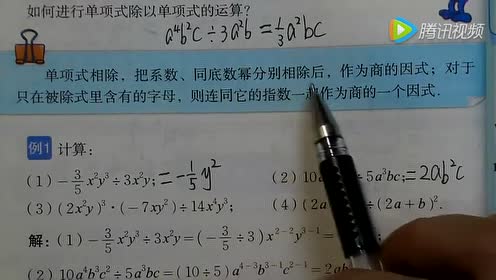 如何进行单项式除以单项式的运算?
腾讯视频
a⁴b²c÷3a²b=⅓a²bc
单项式相除,把系数、同底数幂分别相除后,作为商的因式;对于
只在被除式里含有的字母,则连同它的指数一起作为商的一个因式.
例1 计算:
(1) -3/5x²y³÷3x²y; =-1/5y²
(2) 10a 5a³bc; =2ab²c
(3) (2x²y)³·(-7xy²)÷14x⁴y³;
(4) (2a ÷(2a+b)².
解:(1) -3/5x²y³÷3x²y=(-3/5÷3)x²⁻²y³⁻¹=
(2) 10a⁴b³c²÷5a³bc=(10÷5)a⁴⁻³b³⁻¹c²⁻¹=2ab